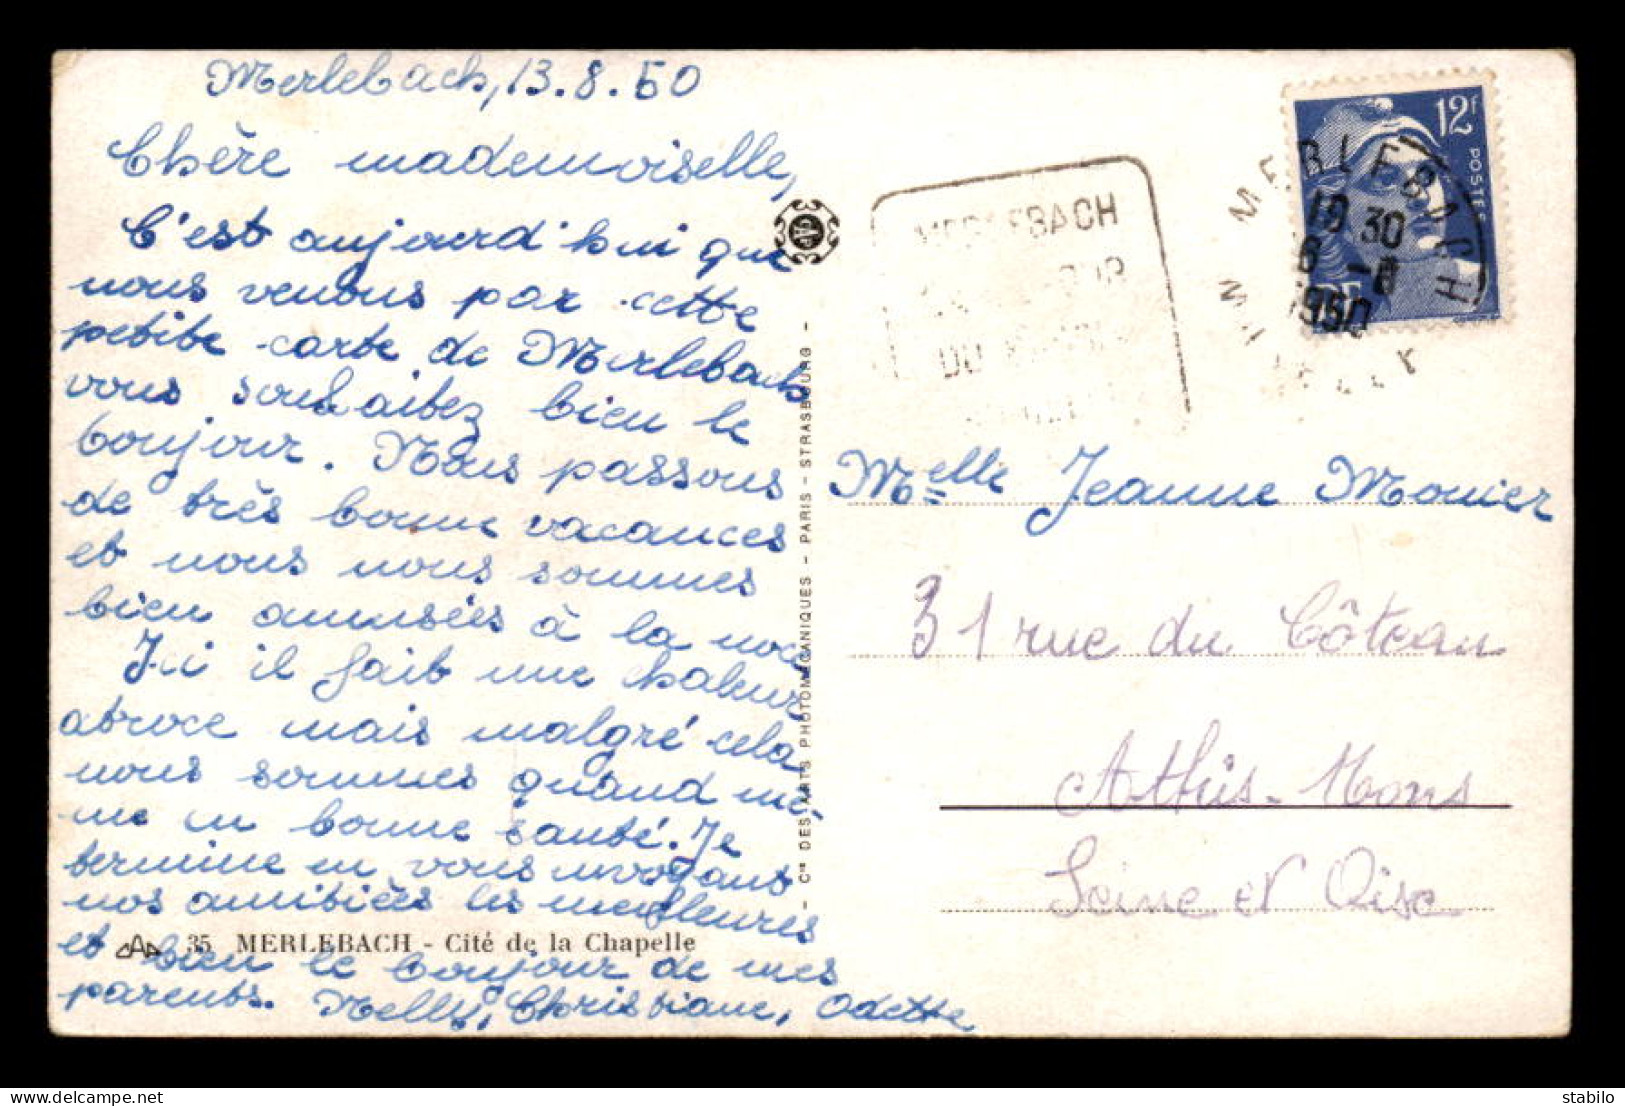 Merlebach, 13.8.50
Chère mademoiselle,
C'est aujourd'hui que
nous venons par cette
petite carte de Merlebach
vous souhaitez bien le
bonjour. Nous passons
de très bonne vacances
et nous nous sommes
bien amusées à la noce
Ici il fait une chaleur
atroce mais malgré cela
nous sommes quand mê-
me en bonne santé. Je
termine en vous envoyant
nos amitiées les meilleures
et bien le bonjour de mes
parents. Nelly, Christiane, Odette
35 MERLEBACH - Cité de la Chapelle
- Cie DES ARTS PHOTOMÉCANIQUES - PARIS - STRASBOURG -
CAP
MERLEBACH
SUR
DU
12f
POSTES
RF
MERLEBACH
19 30
8
1950
MOSELLE
Melle Jeanne Monier
31 rue du Côteau
Athis-Mons
Seine et Oise